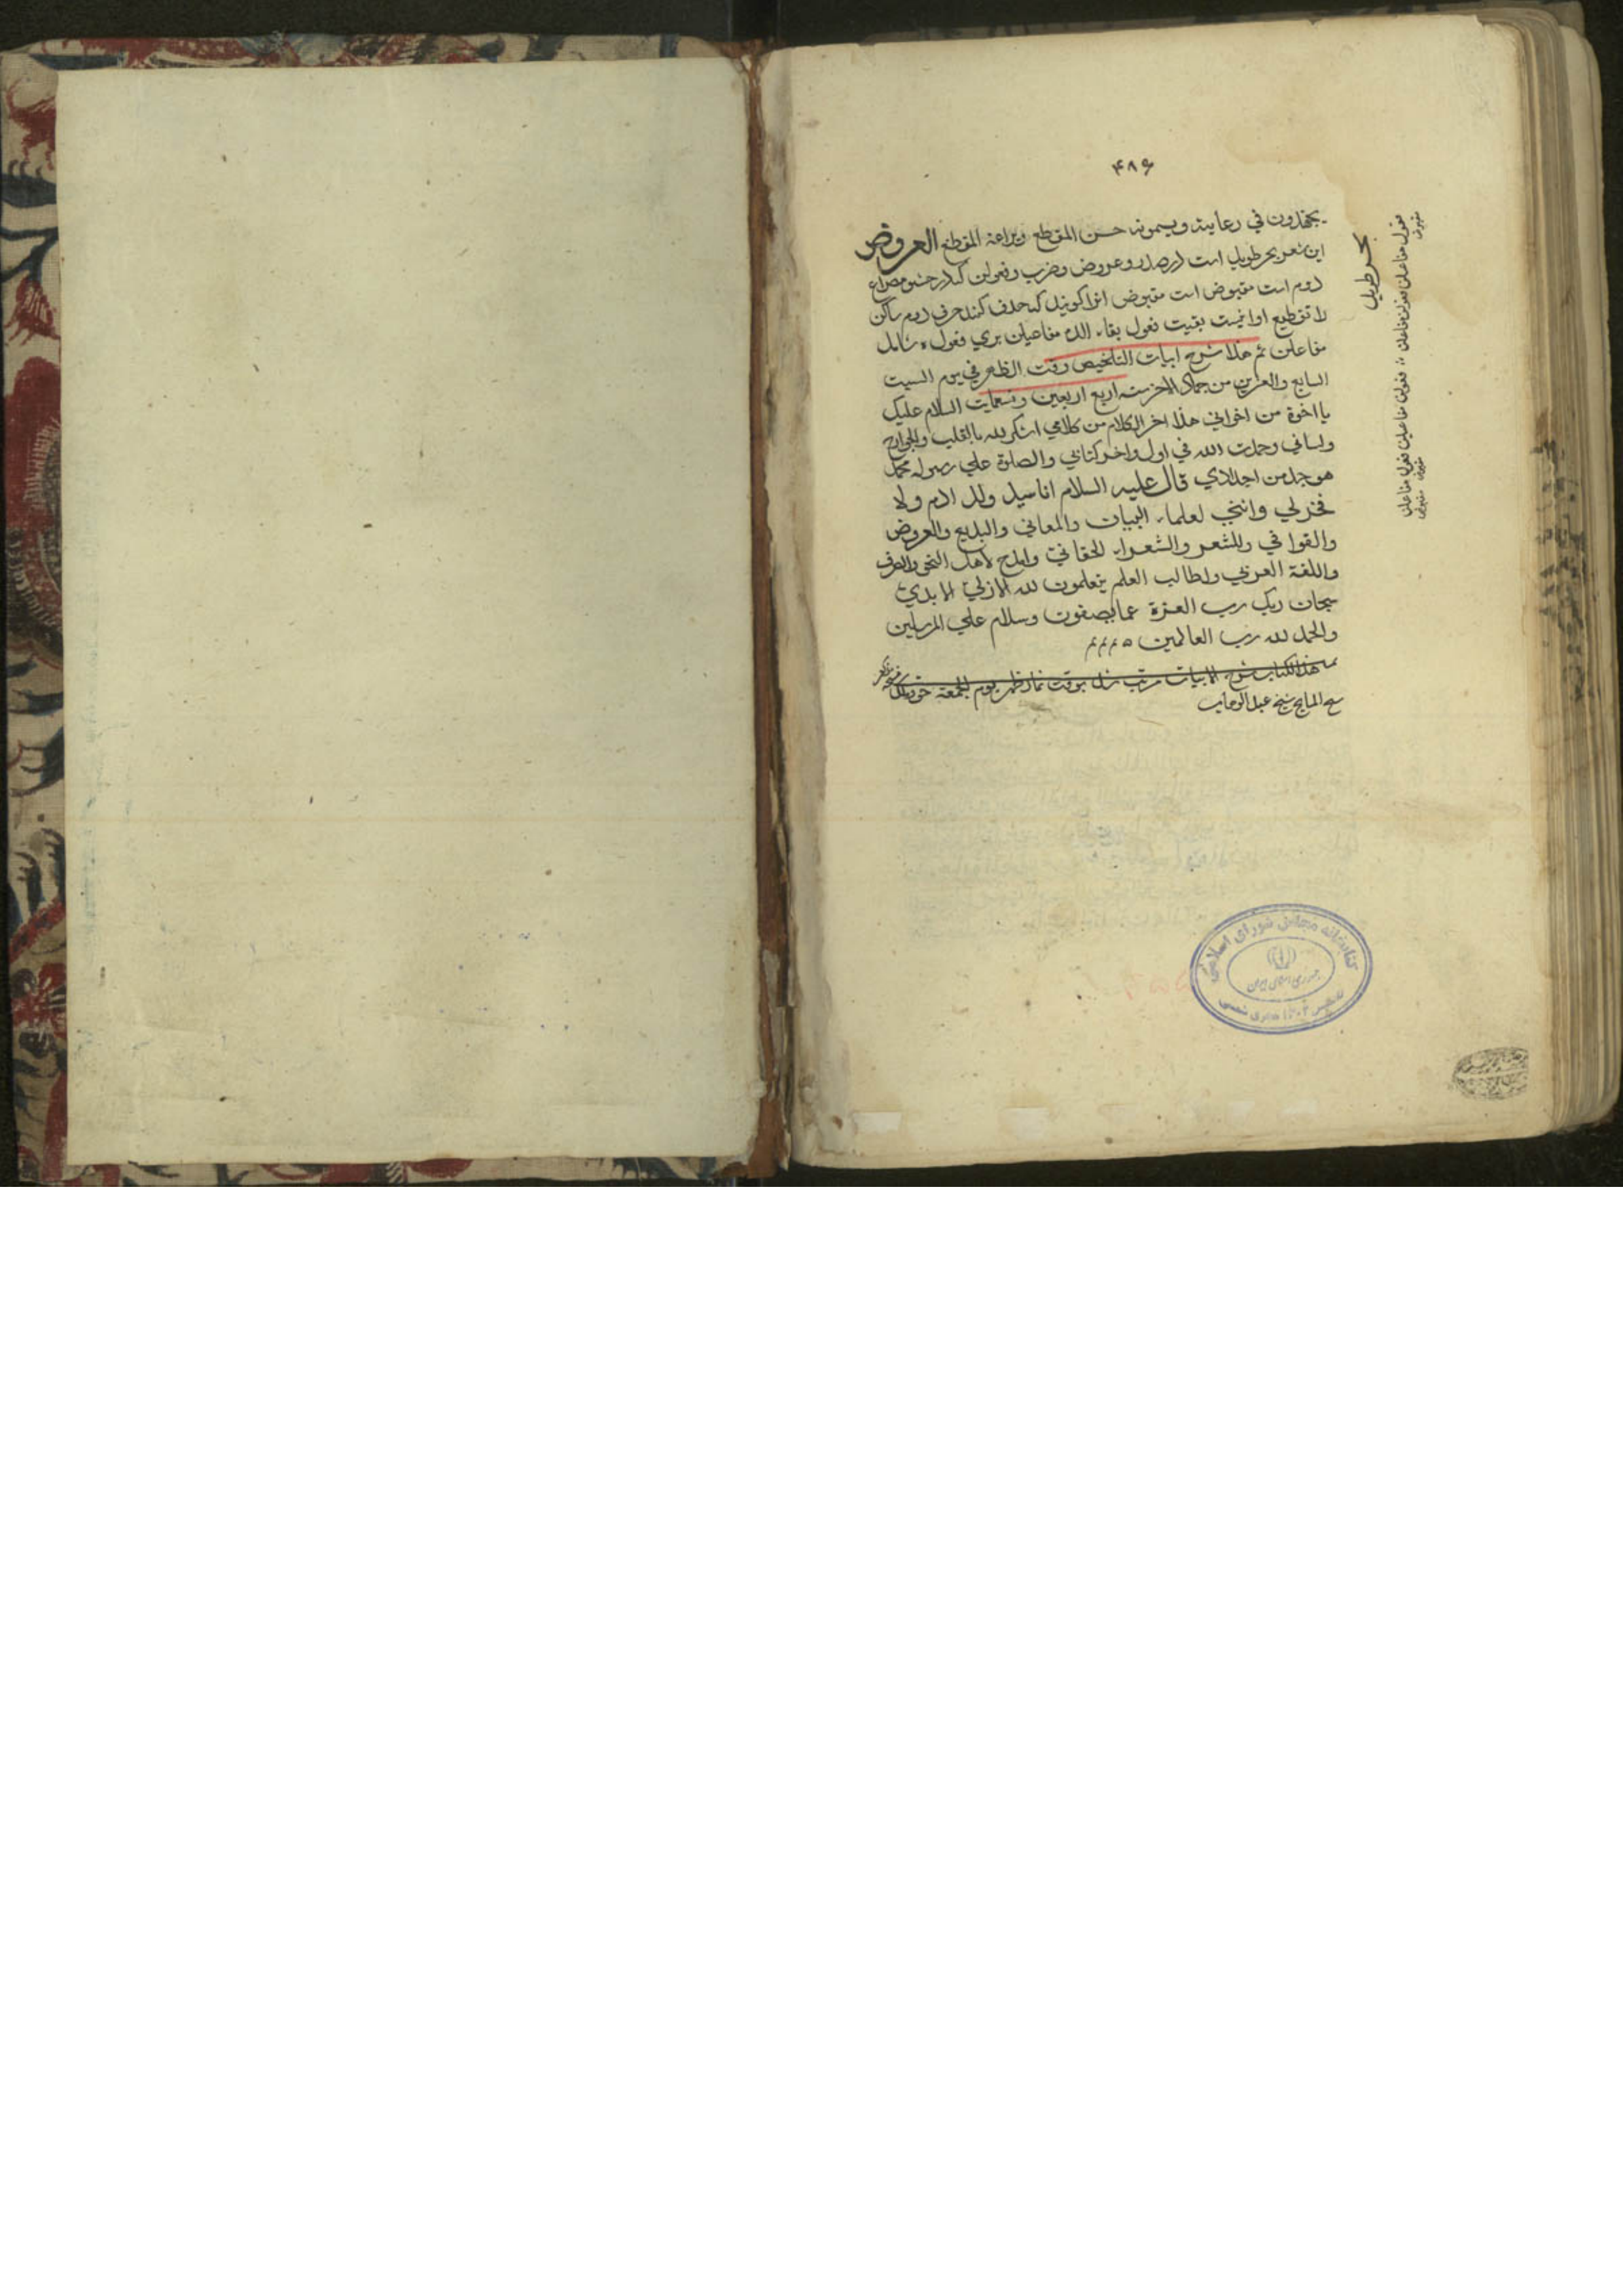 ۴۸۶
يجتهدون في رعايته ويسمونه حسن المقطع وبراعة المقطع العروض
این شعر بحر طویل است در صدر و عروض و ضرب و فعولن که در حشو مصراع
دوم است مقبوض است مقبوض انرا کویند که حذف کنند حرف ساکن
را تقطیع او اینست بقیت فعول بقاء الده مفاعیلن بري فعول
مفاعلن تم هذا شرح ابيات التلخيص وقت الظهر في يوم السبت
السابع والعشرين من جمادى الاخر سنه اربع اربعين وتسعمايت السلام عليك
يا اخوة من اخواني هذا اخر الكلام من كلامي اشكر لله بالقلب والجوارح
ولساني وحمدت الله في اول واخر كتابي والصلوة علي رسوله محمد
هو جد من اجدادي قال عليه السلام انا سيد ولد ادم ولا
فخر لي لعلماء البيان والمعاني والبديع والعروض
والقوافي وللشعر والشعراء الحقاني وامدح لاهل النحو والصرف
واللغة العربي ولطالب العلم يتعلمون لله الازلي الابدي
سبحان ربك رب العزة عما يصفون وسلام علي المرسلين
والحمد لله رب العالمين
هذا الكتاب شرح الابيات مرتب شد بوقت نماز ظهر يوم الجمعه
شيخ عبد الوهاب
بحر طويل
فعول مفاعلن فعولن مفاعلن فعولن مفاعيلن فعول مفاعلن
مقبوض
کتابخانه مجلس شورای اسلامی
جمهوری اسلامی ایران
تاسیس ۱۳۰۲ هجری شمسی